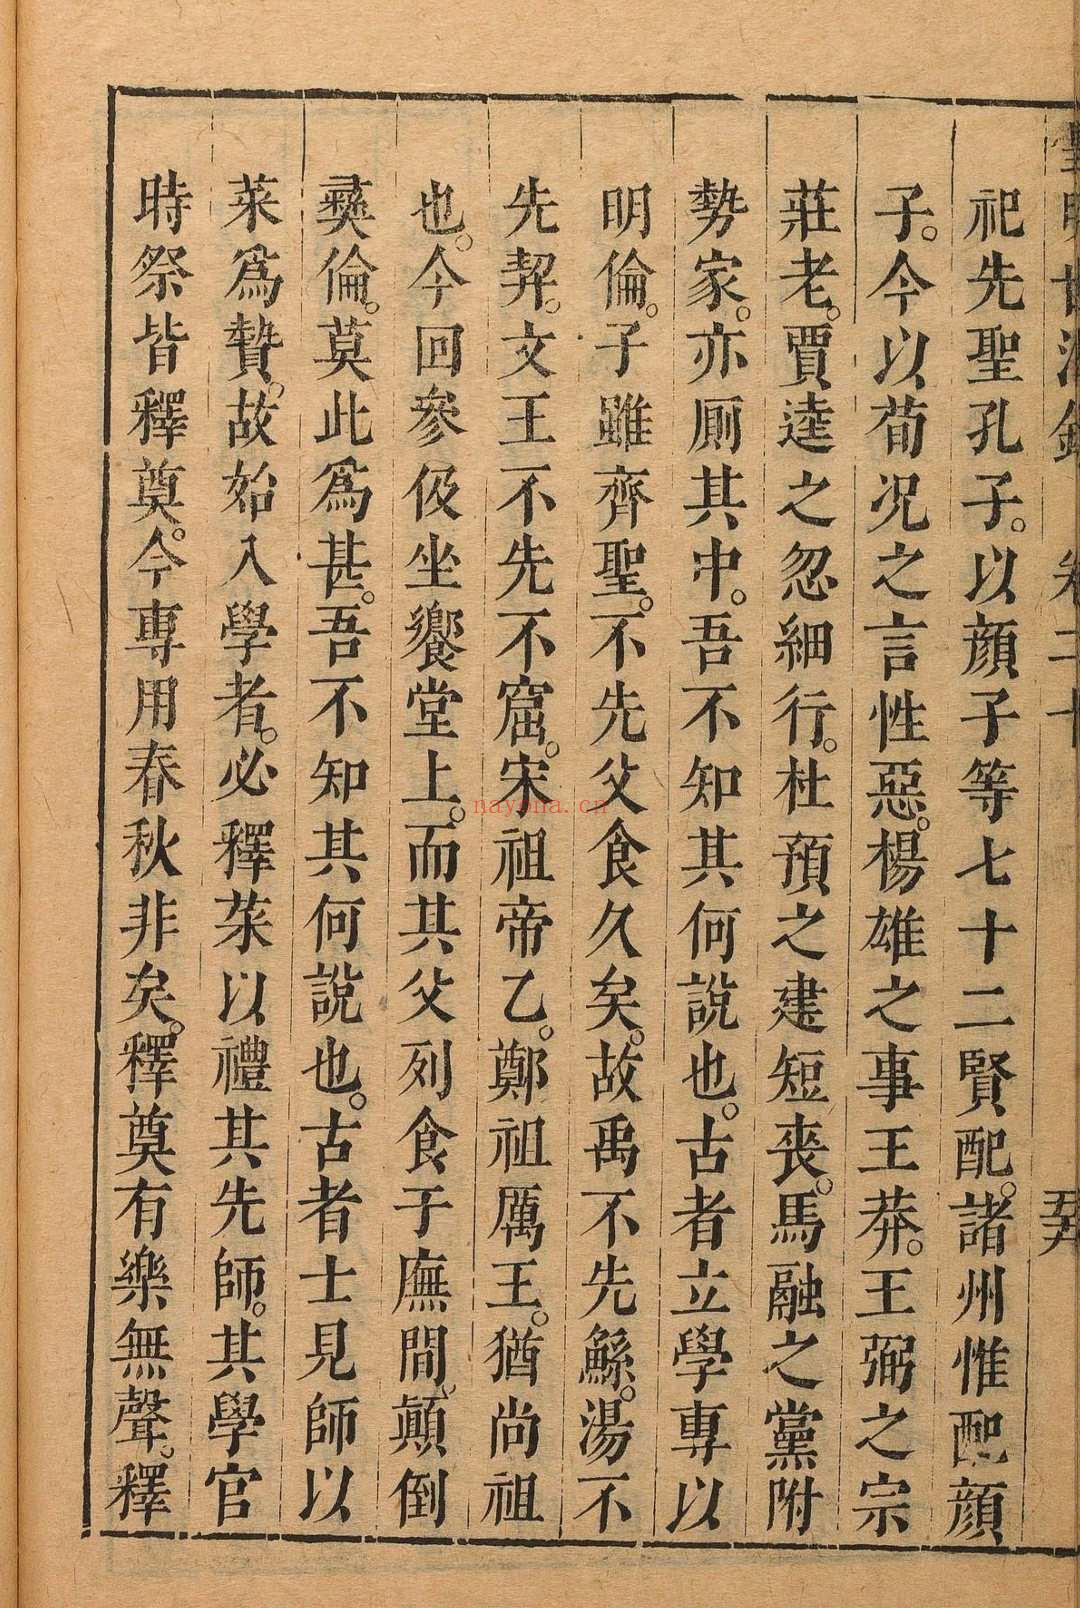 祀先聖孔子。以顔子等七十二賢配。諸州惟配顔
子。今以荀况之言性惡。楊雄之事王莽。王弼之宗
莊老。賈逵之忽細行。杜預之建短喪。馬融之黨附
勢家。亦厠其中。吾不知其何說也。古者立學專以
明倫。子雖齊聖。不先父食久矣。故禹不先鯀。湯不
先契。文王不先不窋。宋祖帝乙。鄭祖厲王。猶尚祖
也。今回參伋坐饗堂上。而其父列食于廡間。顚倒
彞倫。莫此爲甚。吾不知其何說也。古者士見師以
菜爲贄。故始入學者。必釋菜以禮其先師。其學官
時祭皆釋奠。今專用春秋非矣。釋奠有樂無聲。釋
nayona.cn